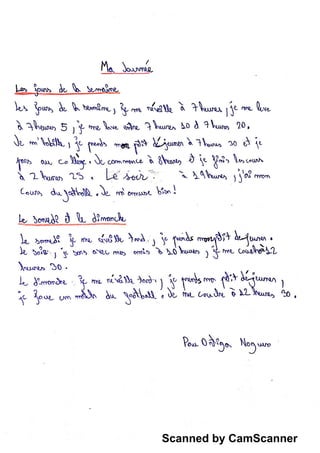 Ma Journée
Les jours de la semaine
Les jours de la semaine, je me réveille à 7 heures, je me lève
à 7 heures 5, je me lave entre 7 heures 10 et 7 heures 20.
Je m'habille, je prends mon ptit déjeuner à 7 heures 30 et je
pars au collège. Je commence à 8 heures et je finis les cours
à 2 heures 25. Le soir à 19 heures, j'ai mon
cours du football. Je m'amuse bien!
Le samedi et le dimanche
Le samedi je me réveille tard, je prends mon ptit dejeuner.
Le soir, je sors avec mes amis à 10 heures, je me couche à 12
heures 30.
Le dimanche je me réveille tard, je prends mon ptit déjeuner,
je joue un match du football. Je me couche à 12 heures 30.
Pau Noguero
Scanned by CamScanner